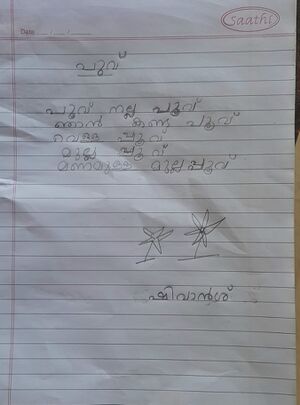 Saathi
Date ..../..../....
പൂവ്
പൂവ് നല്ല പൂവ്
ഞാൻ കണ്ട പൂവ്
വെള്ള പൂവ്
മുല്ല പൂവ്
മണമുള്ള മുല്ലപ്പൂവ്
ഷിവാൻശ്